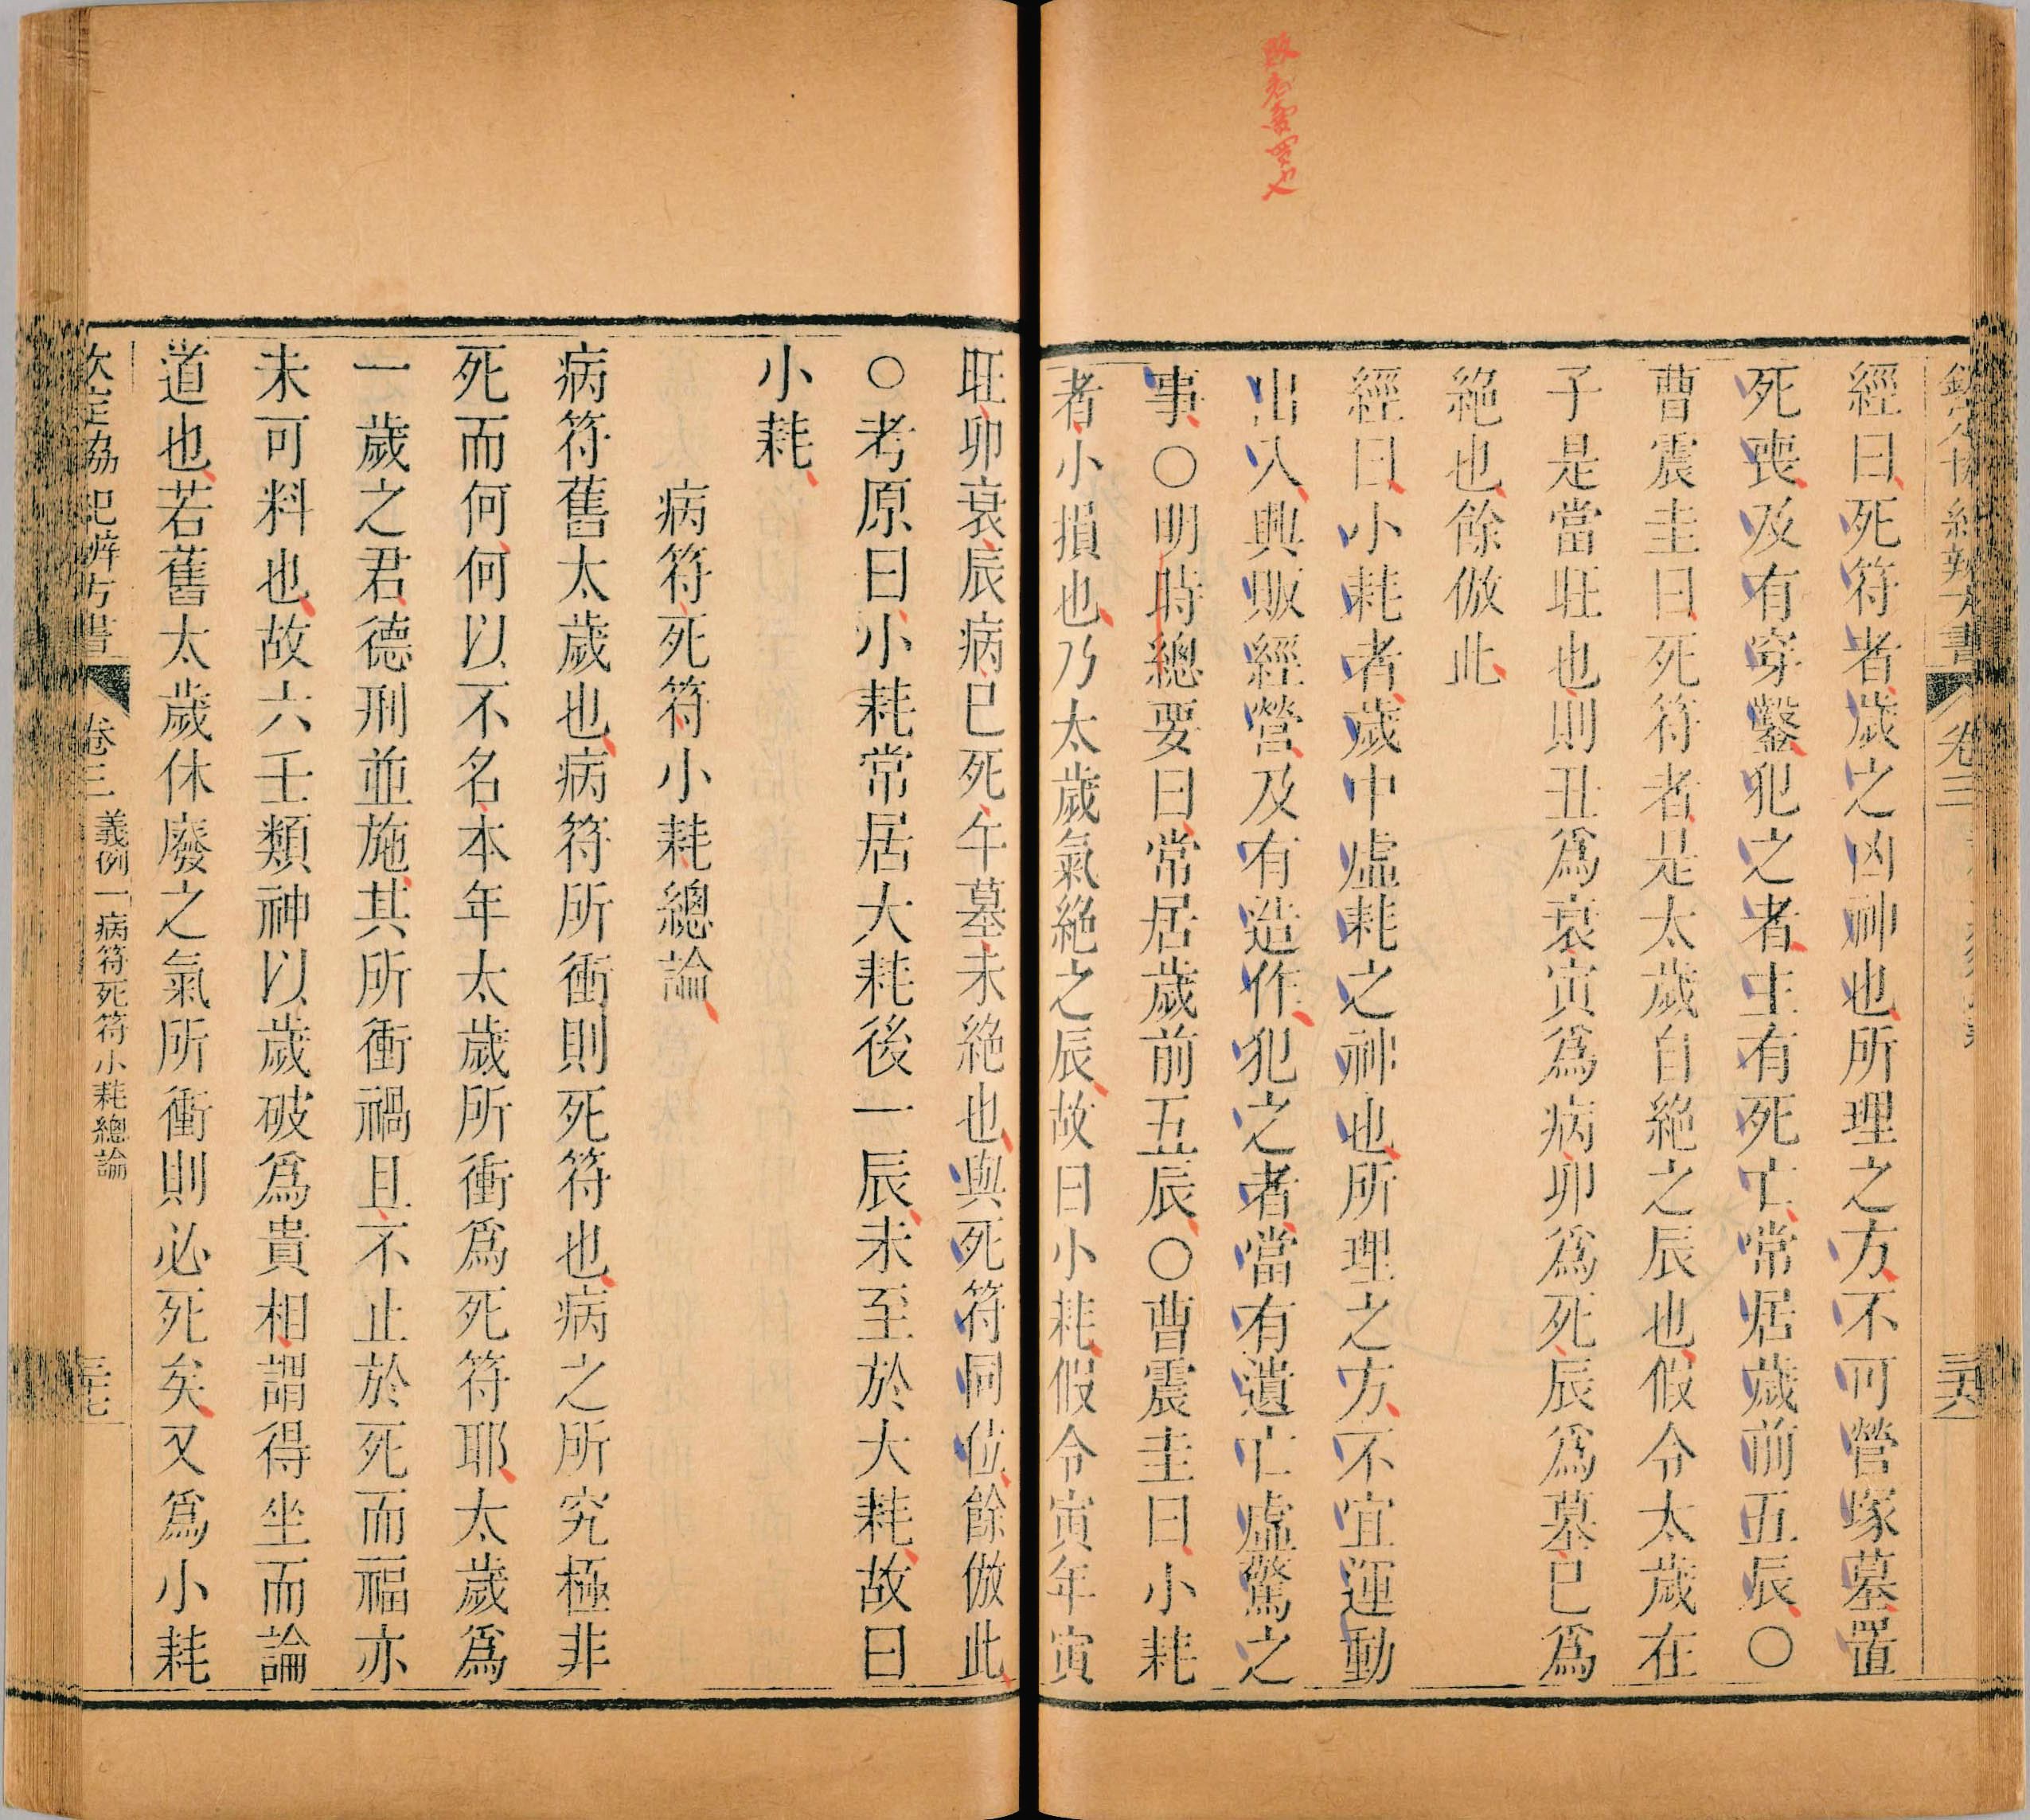 經曰死符者歲之凶神也所理之方不可營塚墓置
死喪及有穿鑿犯之者主有死亡常居歲前五辰〇
曹震圭曰死符者是太歲自絶之辰也假令太歲在
子是當旺也則丑爲衰寅爲病卯爲死辰爲墓巳爲
絶也餘倣此
經曰小耗者歲中虛耗之神也所理之方不宜運動
出入興販經營及有造作犯之者當有遺亡虛驚之
事〇明時總要曰常居歲前五辰〇曹震圭曰小耗
者小損也乃太歲氣絶之辰故曰小耗假令寅年寅
旺卯衰辰病巳死午墓未絶也與死符同位餘倣此
〇考原曰小耗常居大耗後一辰未至於大耗故曰
小耗
病符死符小耗總論
病符舊太歲也病符所衝則死符也病之所究極非
死而何何以不名本年太歲所衝爲死符耶太歲爲
一歲之君德刑並施其所衝禍且不止於死而福亦
未可料也故六壬類神以歲破爲貴相謂得坐而論
道也若舊太歲休廢之氣所衝則必死矣又爲小耗
欽定協紀辨方書 卷三 義例一病符死符小耗總論 三七